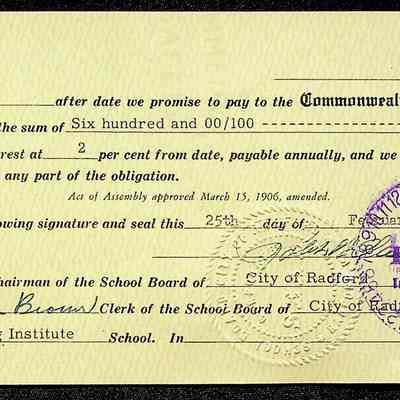 after date we promise to pay to the Commonweal
the sum of Six hundred and 00/100 ------------
rest at 2 per cent from date, payable annually, and we
any part of the obligation.
Act of Assembly approved March 15, 1906, amended.
owing signature and seal this 25th day of Februar
Chairman of the School Board of City of Radford
Brown Clerk of the School Board of City of Radf
g Institute School. In